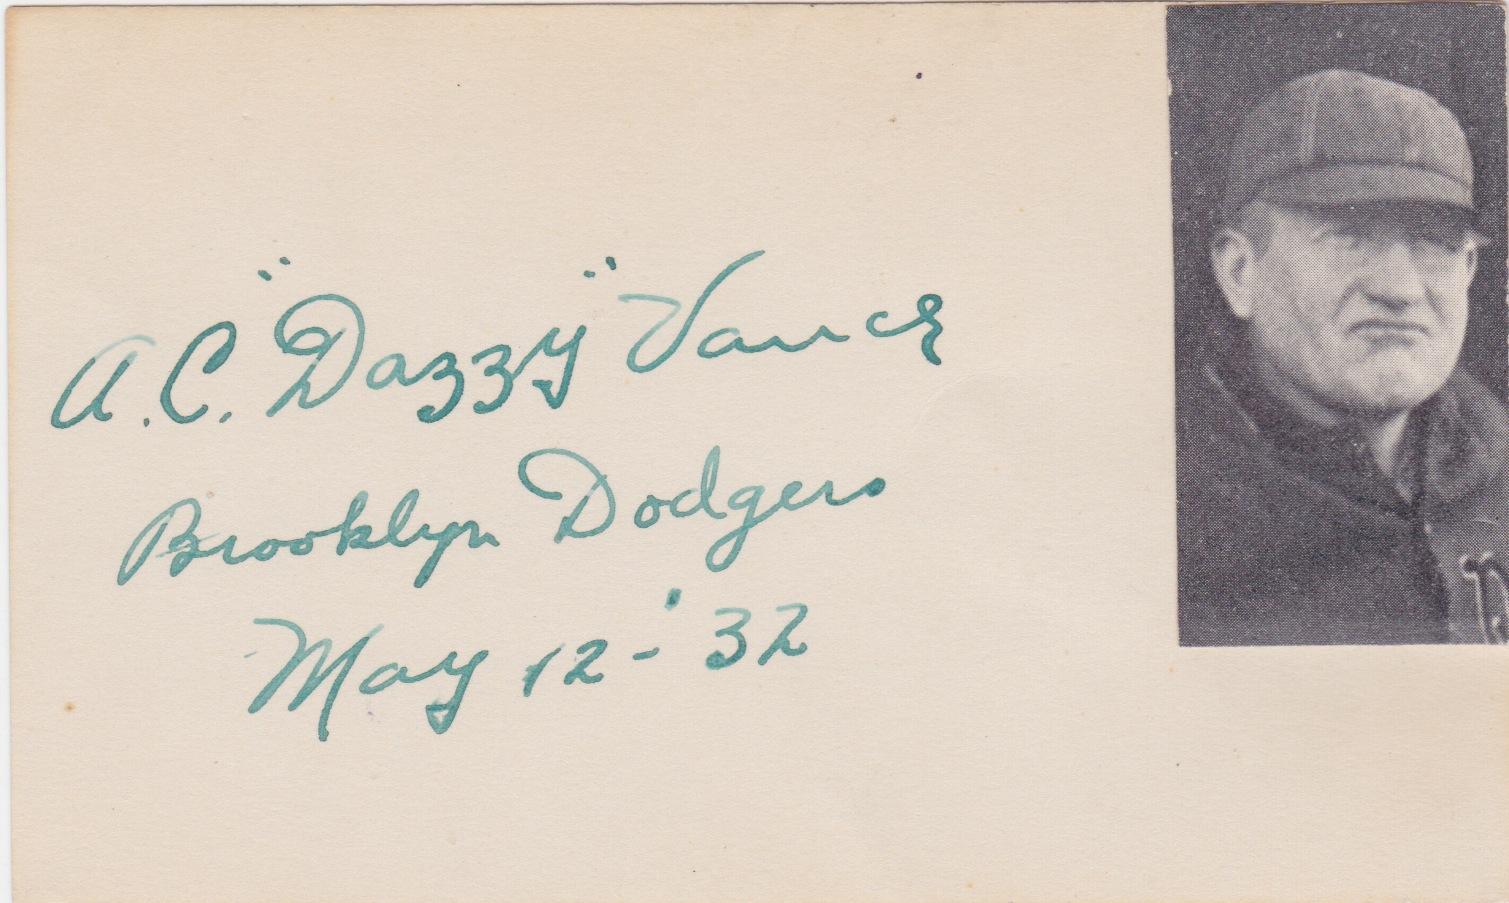 A.C. "Dazzy" Vance
Brooklyn Dodgers
May 12-'32